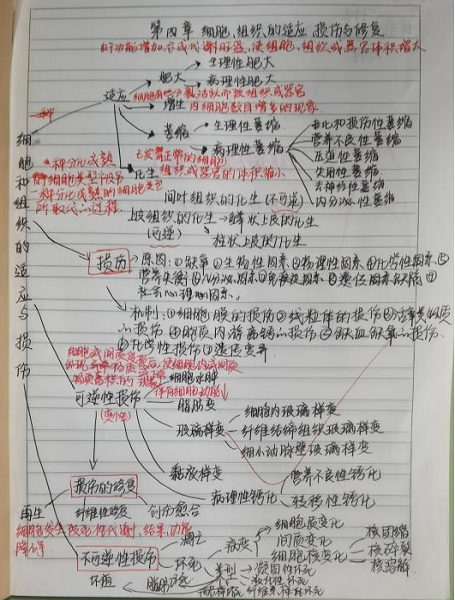 第四章 细胞、组织的适应、损伤与修复
由于功能增加,合成代谢旺盛,使细胞、组织或器官体积增大
生理性肥大
肥大
病理性肥大
适应
增生
细胞数目增多的现象
萎缩
生理性萎缩
病理性萎缩
老化和损伤性萎缩
营养不良性萎缩
压迫性萎缩
失用性萎缩
去神经性萎缩
内分泌性萎缩
已发育正常的细胞
组织或器官的体积缩小
化生
一种分化成熟
的细胞类型被另
一种分化成熟的细胞类型
所取代的过程
间叶组织的化生(不可逆)
上皮组织的化生→鳞状上皮的化生
(可逆)
柱状上皮的化生
细胞和组织的适应与损伤
损伤
原因:①缺氧 ②生物性因素 ③物理性因素 ④化学性因素 ⑤
营养失衡 ⑥内分泌因素 ⑦免疫因素 ⑧遗传因素缺陷 ⑨
社会心理因素
机制:①细胞膜的损伤 ②线粒体的损伤 ③活性氧类物质
的损伤 ④细胞质内游离钙的损伤 ⑤缺血缺氧的损伤
⑥化学性损伤 ⑦遗传变异
可逆性损伤
(变性)
细胞水肿
脂肪变
玻璃样变
细胞内玻璃样变
纤维结缔组织玻璃样变
细小动脉壁玻璃样变
黏液样变
病理性钙化
营养不良性钙化
转移性钙化
损伤的修复
再生
纤维性修复
创伤愈合
细胞发生致死性代谢、结构、功能
障碍
不可逆性损伤
凋亡
坏死
病变
细胞质变化
间质变化
细胞核变化
核固缩
核碎裂
核溶解
类型
凝固性坏死
液化性坏死
纤维素样坏死
坏疽
脂肪坏死